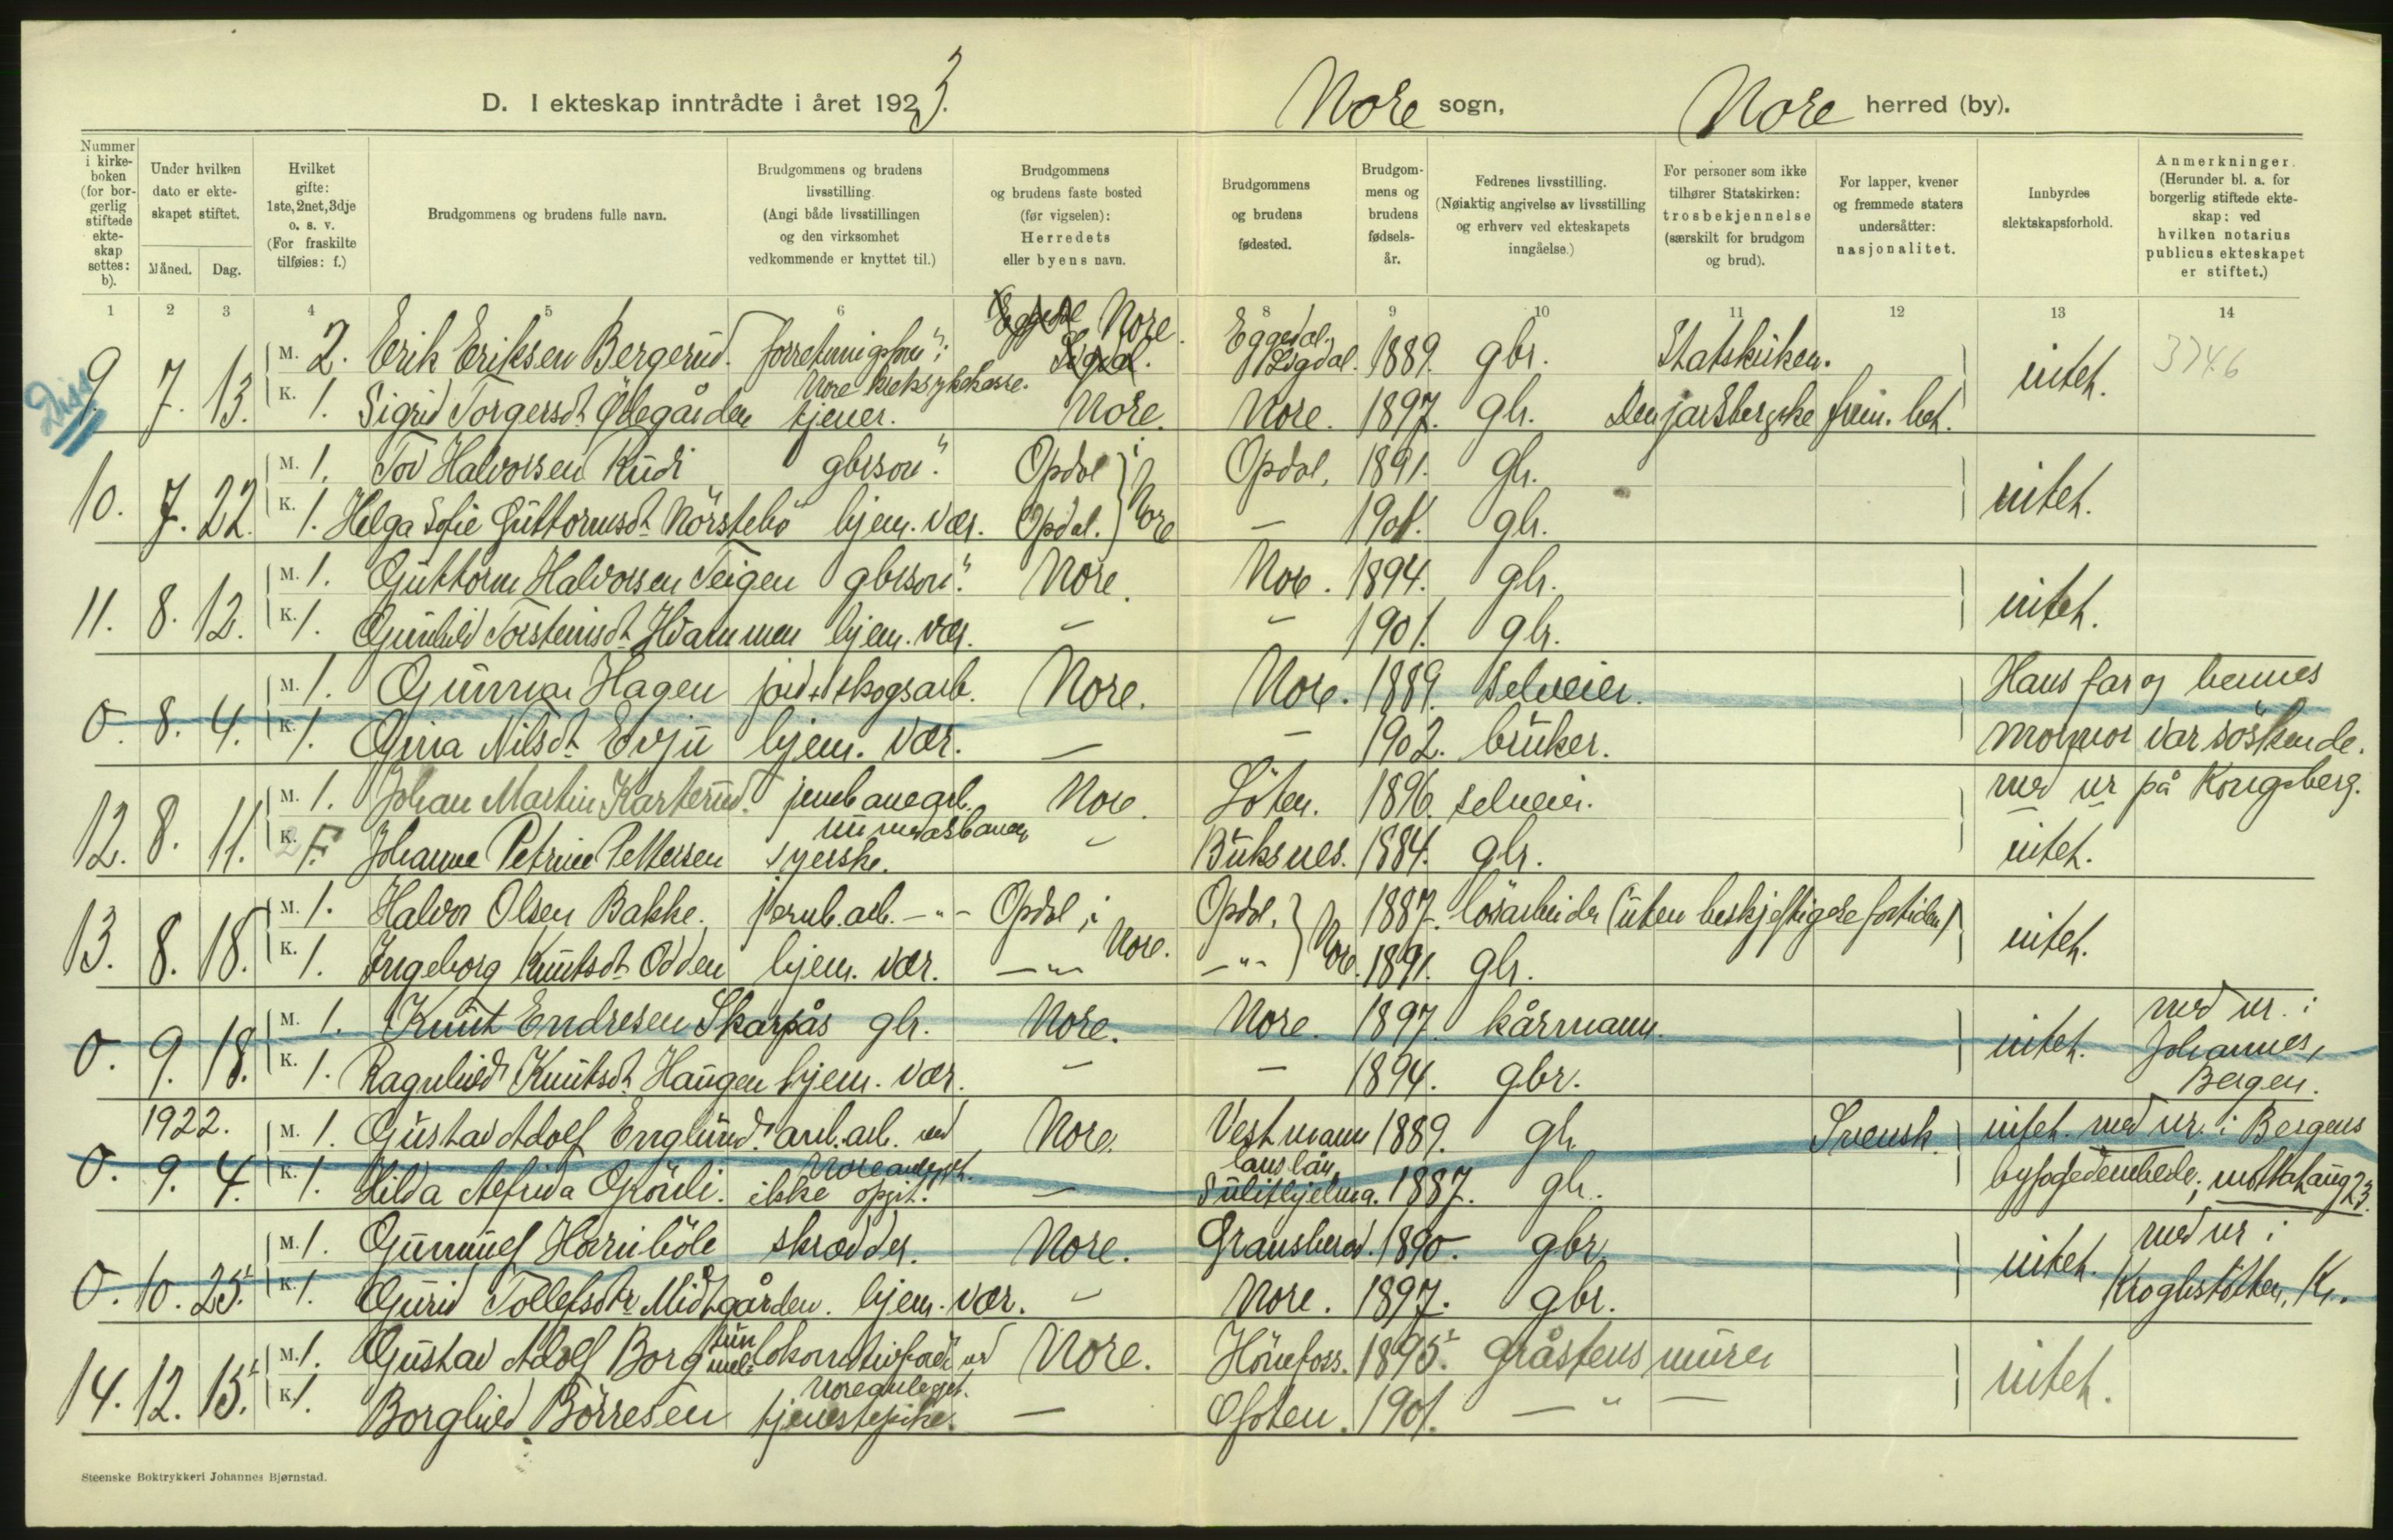 D. I ekteskap inntrådte i året 1923.
Nore sogn,
Nore herred (by).
Nummer i kirkeboken (for borgerlig stiftede ekteskap settes: b).
Under hvilken dato er ekteskapet stiftet.
Måned. Dag.
Hvilket gifte: 1ste, 2net, 3dje o. s. v. (For fraskilte tilføies: f.)
Brudgommens og brudens fulle navn.
Brudgommens og brudens livsstilling. (Angi både livsstillingen og den virksomhet vedkommende er knyttet til.)
Brudgommens og brudens faste bosted (før vigselen): Herredets eller byens navn.
Brudgommens og brudens fødested.
Brudgommens og brudens fødselsår.
Fedrenes livsstilling. (Nøiaktig angivelse av livsstilling og erhverv ved ekteskapets inngåelse.)
For personer som ikke tilhører Statskirken: trosbekjennelse (særskilt for brudgom og brud).
For lapper, kvener og fremmede staters undersåtter: nasjonalitet.
Innbyrdes slektskapsforhold.
Anmerkninger. (Herunder bl. a. for borgerlig stiftede ekteskap: ved hvilken notarius publicus ekteskapet er stiftet.)
1 2 3 4 5 6 8 9 10 11 12 13 14
Diss
9. 7. 13. M. 2. Erik Eriksen Bergerud. Nore Nore. Eggedal Sigdal. 1889. gbr. Statskirken. intet. 3746
K. 1. Sigrid Torgersdt Ødegården tjener. Nore. Nore. 1897. gbr. Den jarlsbergske frim.
10. 7. 22. M. 1. Tov Halvorsen Rudi gbrson". Opdal i Nore Opdal. 1891. gbr. intet.
K. 1. Helga Sofie Guttormsdt Nörstebö hjem. vær. Opdal. — 1901. gbr.
11. 8. 12. M. 1. Guttorm Halvorsen Teigen gbrson". Nore. Nore. 1894. gbr. intet.
K. 1. Gunhild Torsteinsdt Hvammen hjem. vær. — — 1901. gbr.
0. 8. 4. M. 1. Gunnar Hagen jord + skogsarb. Nore. Nore. 1889. selveier. Hans far og hennes
K. 1. Gina Nilsdt Evju hjem. vær. — — 1902. bruker. mormor var söskende.
med ur på Kongsberg.
12. 8. 11. M. 1. Johan Martin Karterud. jernbanearb. Numedalsbanen Nore. Löten. 1896. selveier. intet.
K. F. Johanne Petrine Pettersen syerske. — Buksnes. 1884. gbr.
13. 8. 18. M. 1. Halvor Olsen Bakke. jernb.arb. —"— Opdal i Nore. Opdal. Nore. 1887. lösarbeider (uten beskjeftigelse fortiden) intet.
K. 1. Ingeborg Knutsdt Odden hjem. vær. —"— —"— 1891. gbr.
0. 9. 18. M. 1. Knut Endresen Skarpås gbr. Nore. Nore. 1897. kårmann. intet. med ur. i
K. 1. Ragnhild Knutsdt Haugen hjem. vær. — — 1894. gbr. Johannes, Bergen.
1922.
0. 9. 4. M. 1. Gustav Adolf Englund. anl.arb. ved Noreanlegget. Nore. Vestmannlanslän 1889. gbr. Svensk. intet. med ur. i Bergens
K. 1. Hilda Alfrida Grönli. ikke opgit. — Sulithjelma. 1887. gbr. byfogedembede; mottat aug 23.
0. 10. 25. M. 1. Gunnulf Skrædder. Nore. Gransherad. 1890. gbr. intet. med ur i
K. 1. Gurid Tollefsdtr Midtgården. hjem. vær. — Nore. 1897. gbr. Kroghstötten, Kr.
14. 12. 15. M. 1. Gustav Adolf Borg lokomotivförer ved Noreanlegget. Nore. Hönefoss. 1895. gråstensmurer intet.
K. 1. Borghild Börresen tjenestepike. — Ofoten. 1901. —"—
Steenske Boktrykkeri Johannes Bjørnstad.